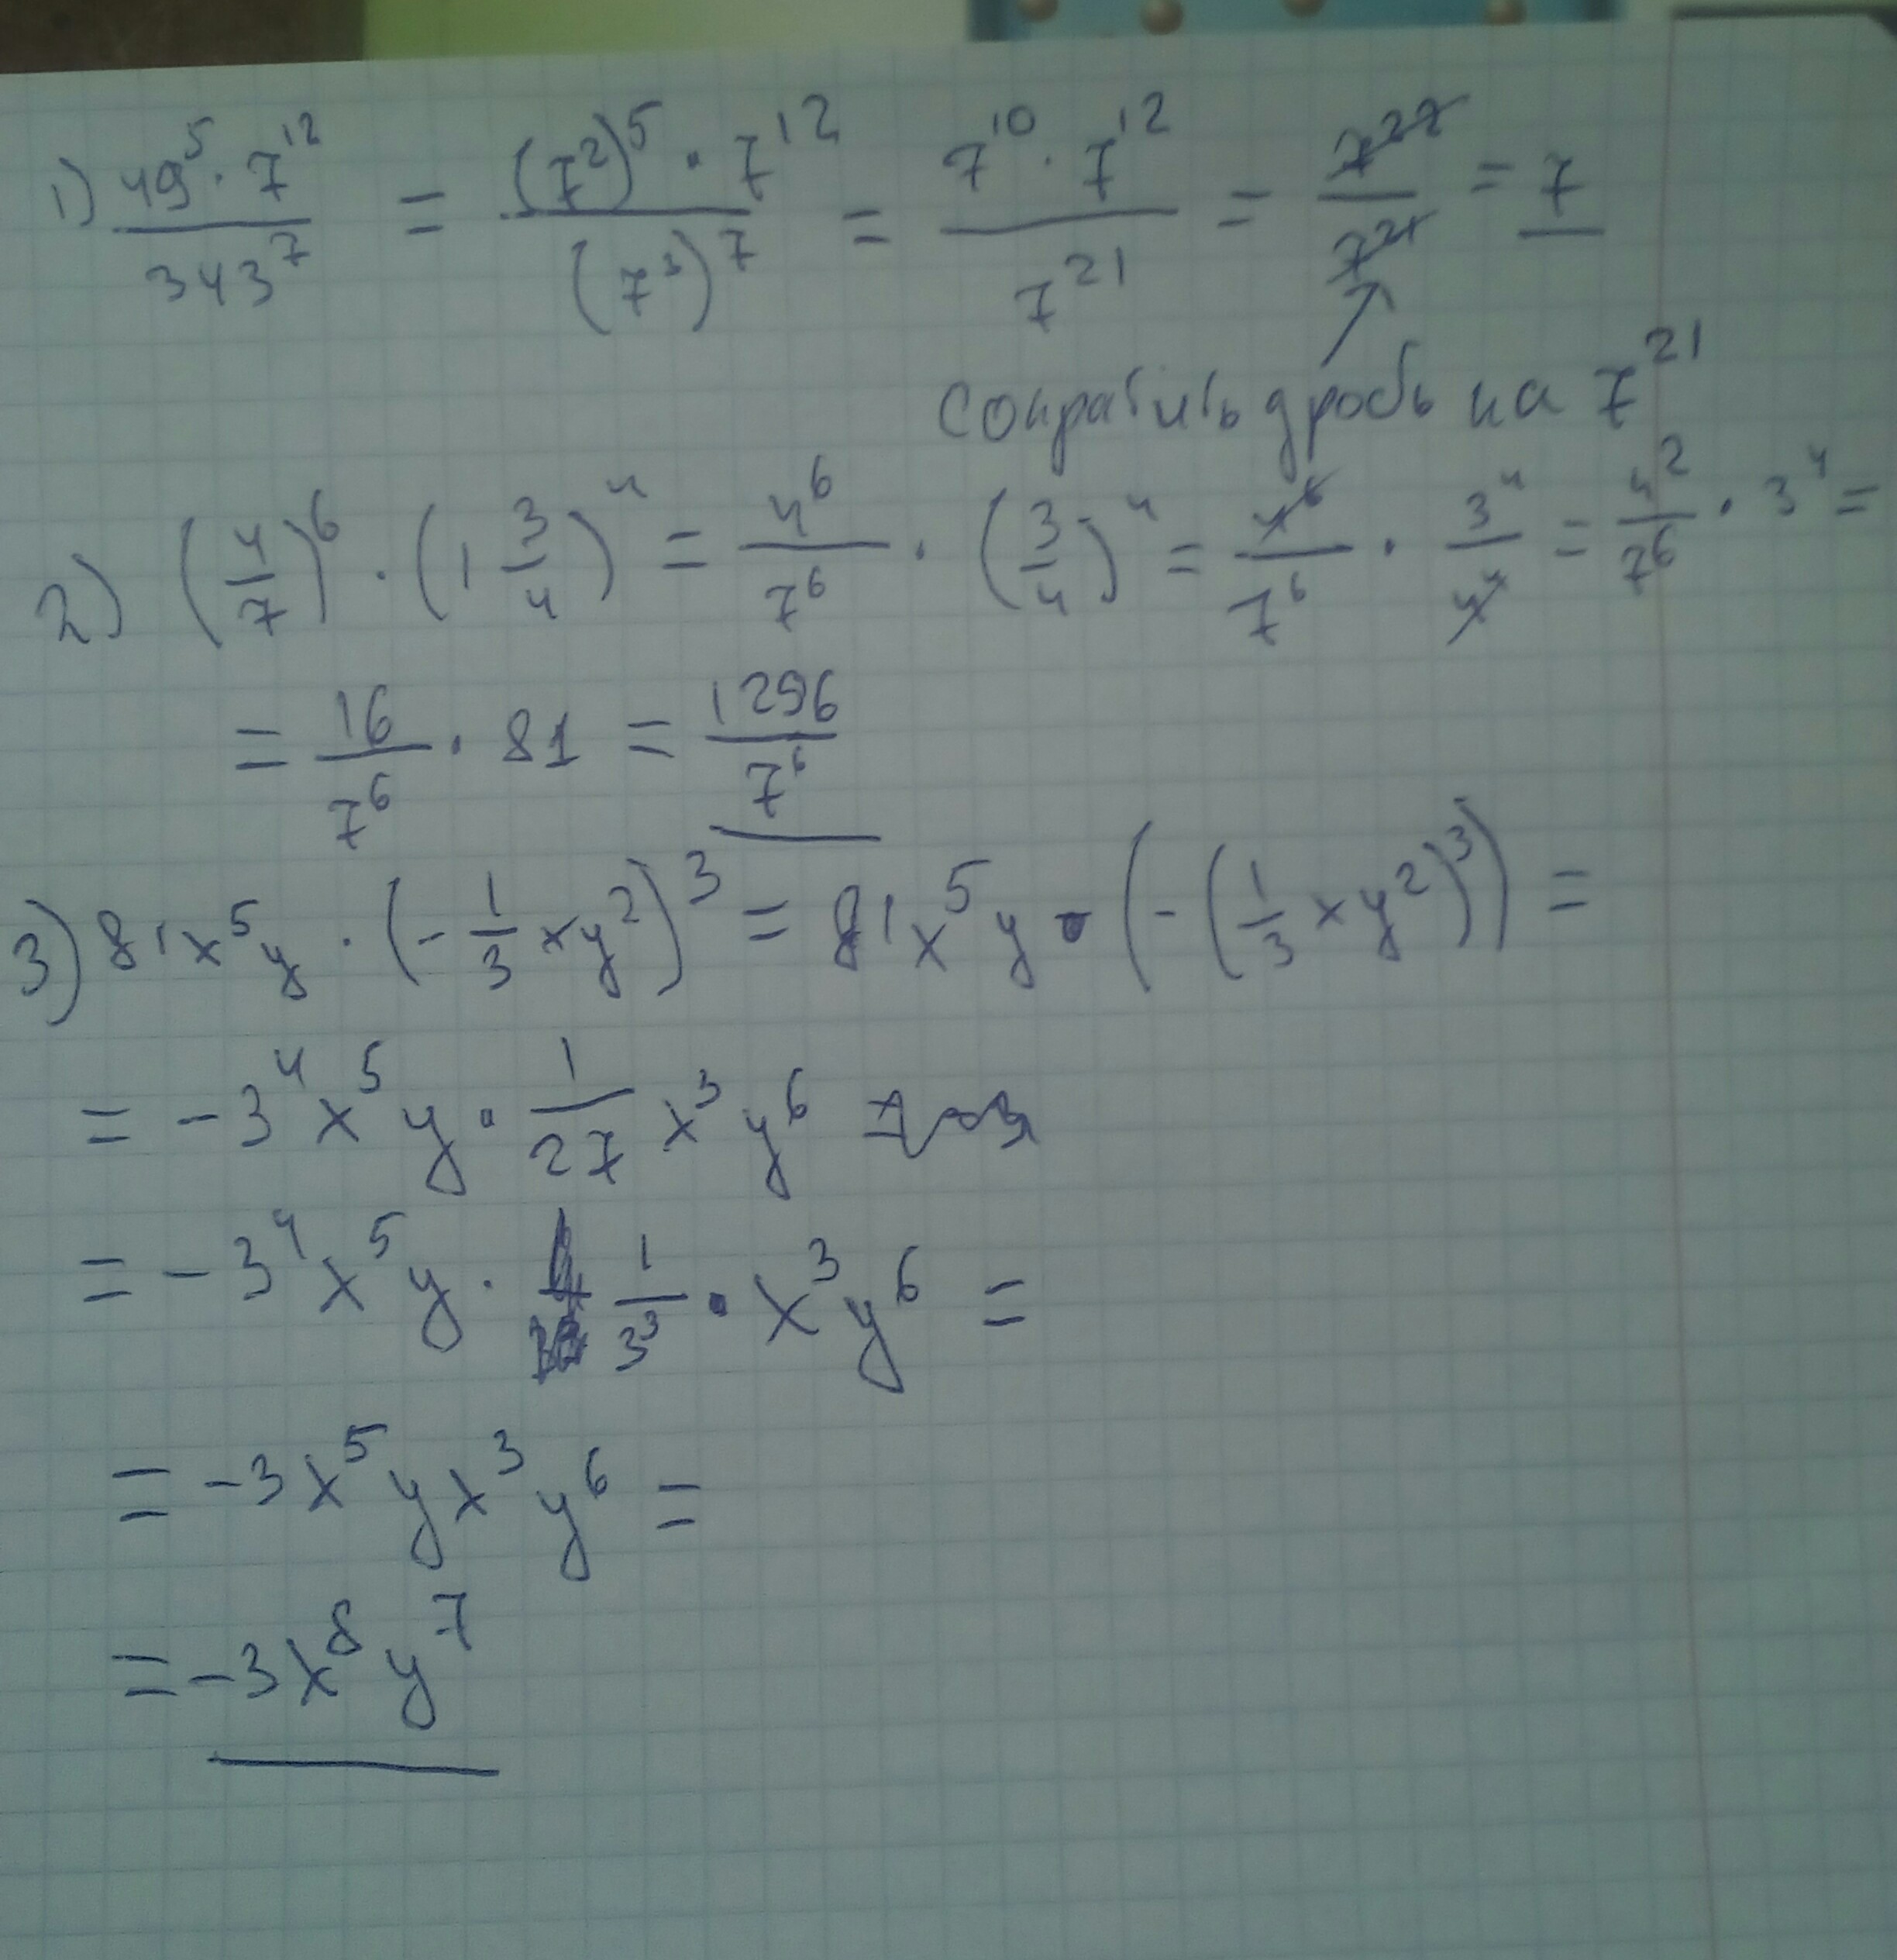 1) 49⁵ · 7¹² / 343⁷ = (7²)⁵ · 7¹² / (7³)⁷ = 7¹⁰ · 7¹² / 7²¹ = 7²² / 7²¹ = 7
сократить дробь на 7²¹
2) (4/7)⁶ · (1 3/4)⁴ = 4⁶/7⁶ · (3/4)⁴ = 4⁶/7⁶ · 3⁴/4⁴ = 4²/7⁶ · 3⁴ =
= 16/7⁶ · 81 = 1296/7⁶
3) 81x⁵y · (-1/3 xy²)³ = 81x⁵y · (-(1/3 xy²)³) =
= -3⁴x⁵y · 1/27 x³y⁶
= -3⁴x⁵y · 1/3³ · x³y⁶ =
= -3x⁵yx³y⁶ =
= -3x⁸y⁷